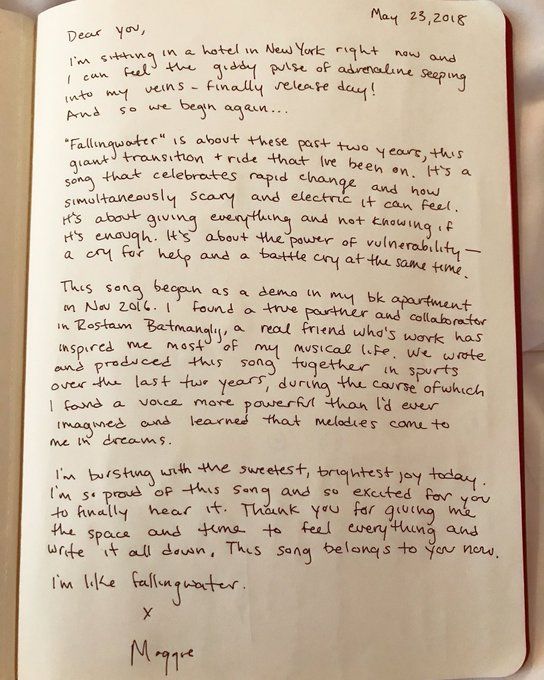 May 23, 2018
Dear you,
I'm sitting in a hotel in New York right now and
I can feel the giddy pulse of adrenaline seeping
into my veins - finally release day!
And so we begin again...
"Fallingwater" is about these past two years, this
giant transition + ride that I've been on. It's a
song that celebrates rapid change and how
simultaneously scary and electric it can feel.
It's about giving everything and not knowing if
it's enough. It's about the power of vulnerability —
a cry for help and a battle cry at the same time.
This song began as a demo in my bk apartment
in Nov 2016. I found a true partner and collaborator
in Rostam Batmanglij, a real friend who's work has
inspired me most of my musical life. We wrote
and produced this song together in spurts
over the last two years, during the course of which
I found a voice more powerful than I'd ever
imagined and learned that melodies come to
me in dreams.
I'm bursting with the sweetest, brightest joy today.
I'm so proud of this song and so excited for you
to finally hear it. Thank you for giving me
the space and time to feel everything and
write it all down. This song belongs to you now.
I'm like fallingwater.
x
Maggie